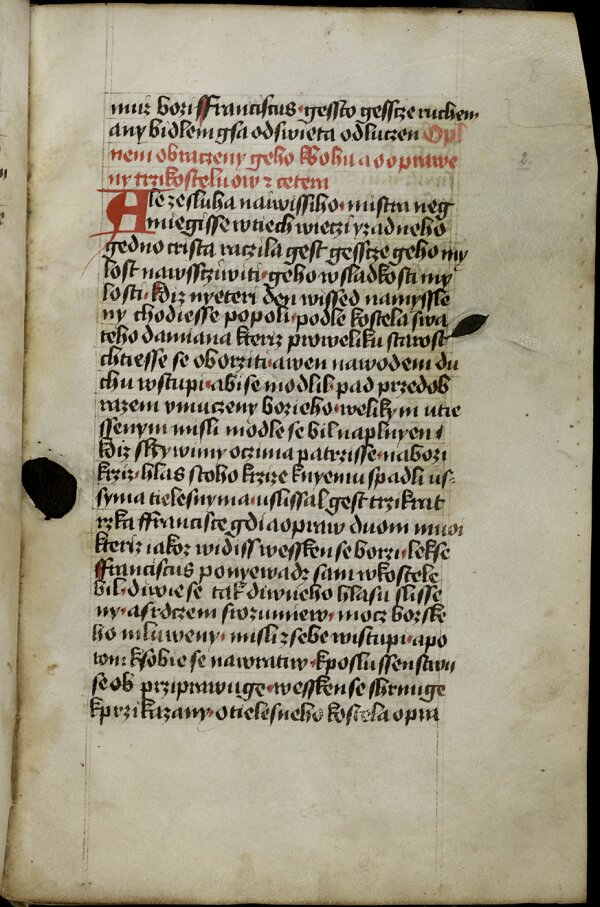 muz bori ffranciscus gessto gesscze ruchem
any bidlem gsa od swieta odluczen Opl
nem obraczeny geho k bohu a o oprawe
ny trzi kosteluow z cetera
Ale ze sluha naiwissiho mistra neg
miegisse w tiech wieczi y zadneho
gedno crista raczila gest gesscze geho my
lost nawssczuwiti geho w sladkosti my
losti kdiz nyeteri den wissed na mysle
ny chodiesse po poli podle kostela swa
teho damiana kteriz pro weliku starost
chtiesse se oborziti a wen nawodem du
chu wstupi abi se modlil pad przed ob
razem vmuczeny borieho welikym utie
ssenym misli modle se bil naplnyen
kdiz slzywimy oczima patrzisse na bozi
krziz hlas s toho krize k nyemu spadli us
syma tielesnyma uslissal gest trzikrat
rzka ffrancisce gdi a opraw duom muoi
kteriz iakoz widiss wessken se borzi lekse
ffranciscus ponyewadz sam w kostele
bil diwie se tak diwneho hlasu slisse
ny a srdczem srozumiew mocz bozske
ho mluweny misli z sebe wistupi a po
tom k sobie se nawratiw k poslussenstwu
se ob prziprawuge wessken se shrnuge
k przikazany o tielesneho kostela opra
2.